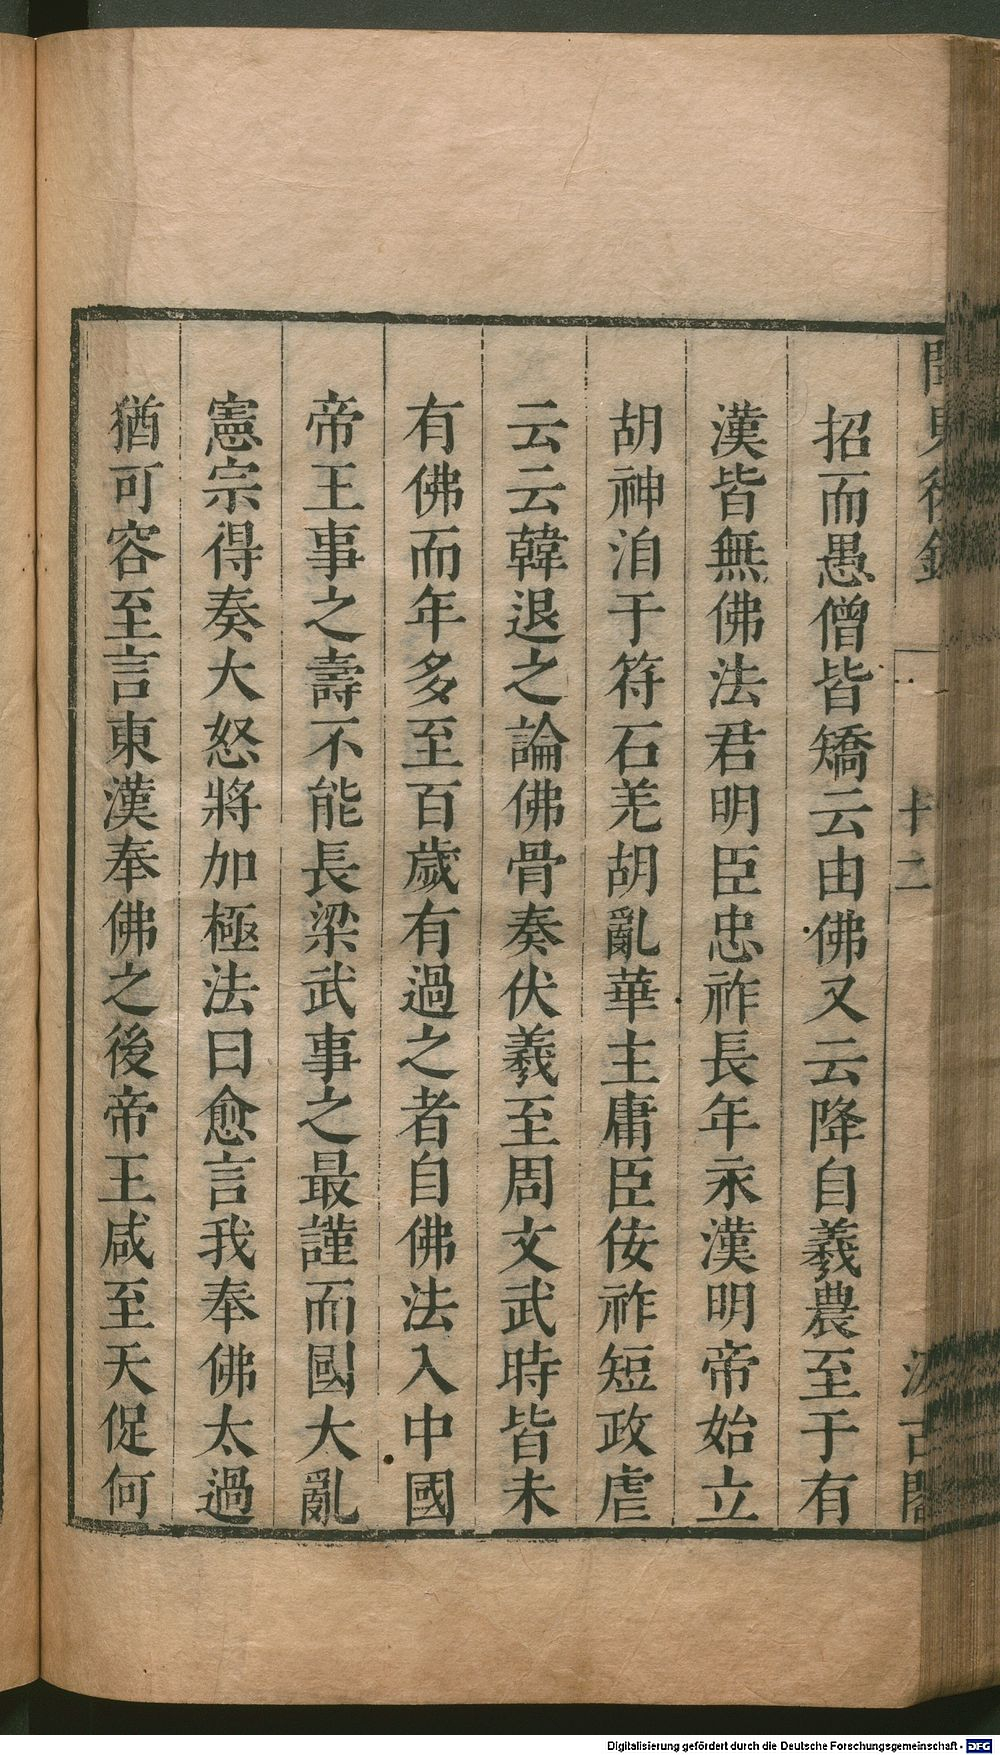 聞見後錄
十二
汲古閣
招而愚僧皆矯云由佛又云降自羲農至于有
漢皆無佛法君明臣忠祚長年永漢明帝始立
胡神洎于符石羌胡亂華主庸臣佞祚短政虐
云云韓退之論佛骨奏伏羲至周文武時皆未
有佛而年多至百歲有過之者自佛法入中國
帝王事之壽不能長梁武事之最謹而國大亂
憲宗得奏大怒將加極法曰愈言我奉佛太過
猶可容至言東漢奉佛之後帝王咸至夭促何
Digitalisierung gefördert durch die Deutsche Forschungsgemeinschaft - DFG